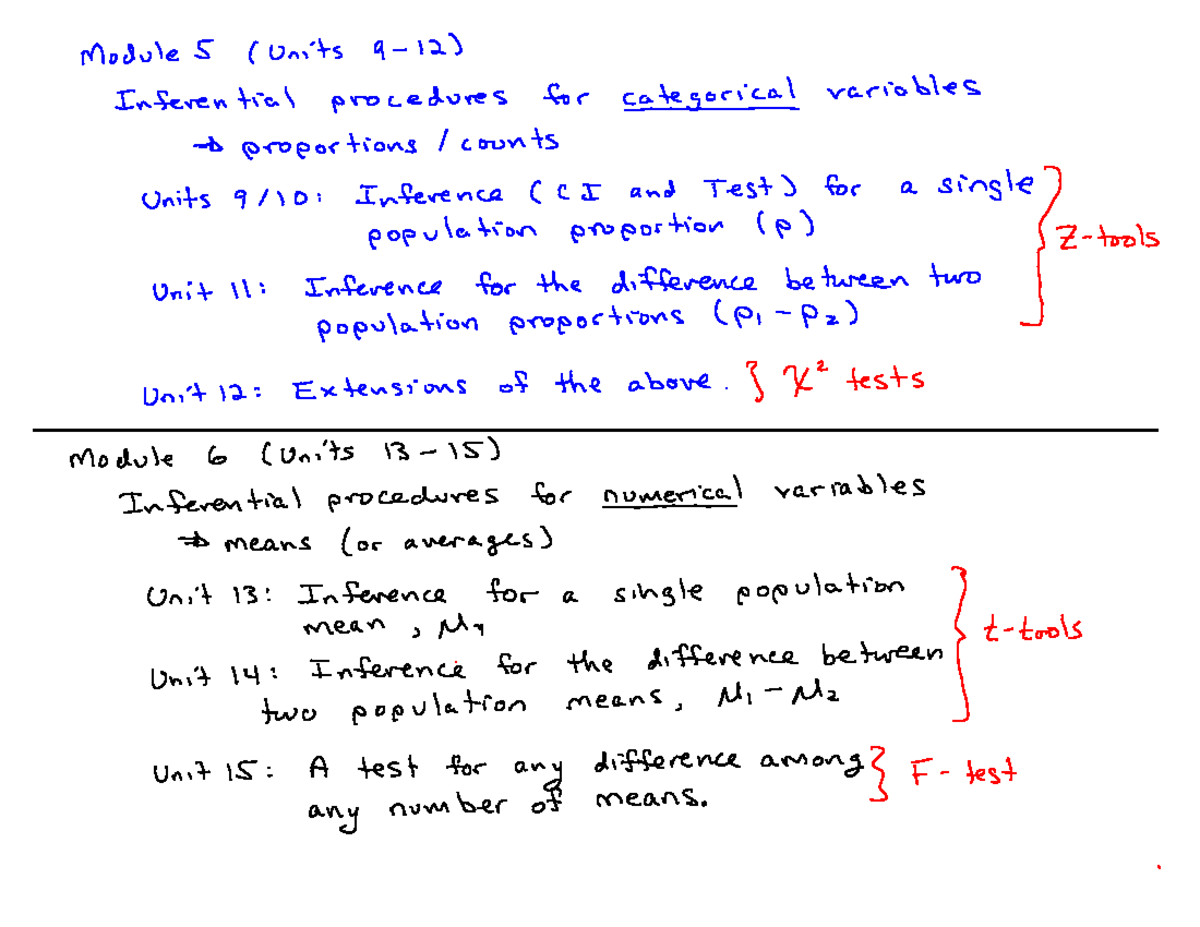 Module 5 (Units 9-12)
Inferential procedures for categorical variables
→ proportions / counts
Units 9/10: Inference (CI and Test) for a single
population proportion (p)
Z-tools
Unit 11: Inference for the difference between two
population proportions (p₁ - p₂)
Unit 12: Extensions of the above. } χ² tests
Module 6 (Units 13-15)
Inferential procedures for numerical variables
→ means (or averages)
Unit 13: Inference for a single population
mean, μ,
t-tools
Unit 14: Inference for the difference between
two population means, μ₁ - μ₂
Unit 15: A test for any difference among } F-test
any number of means.